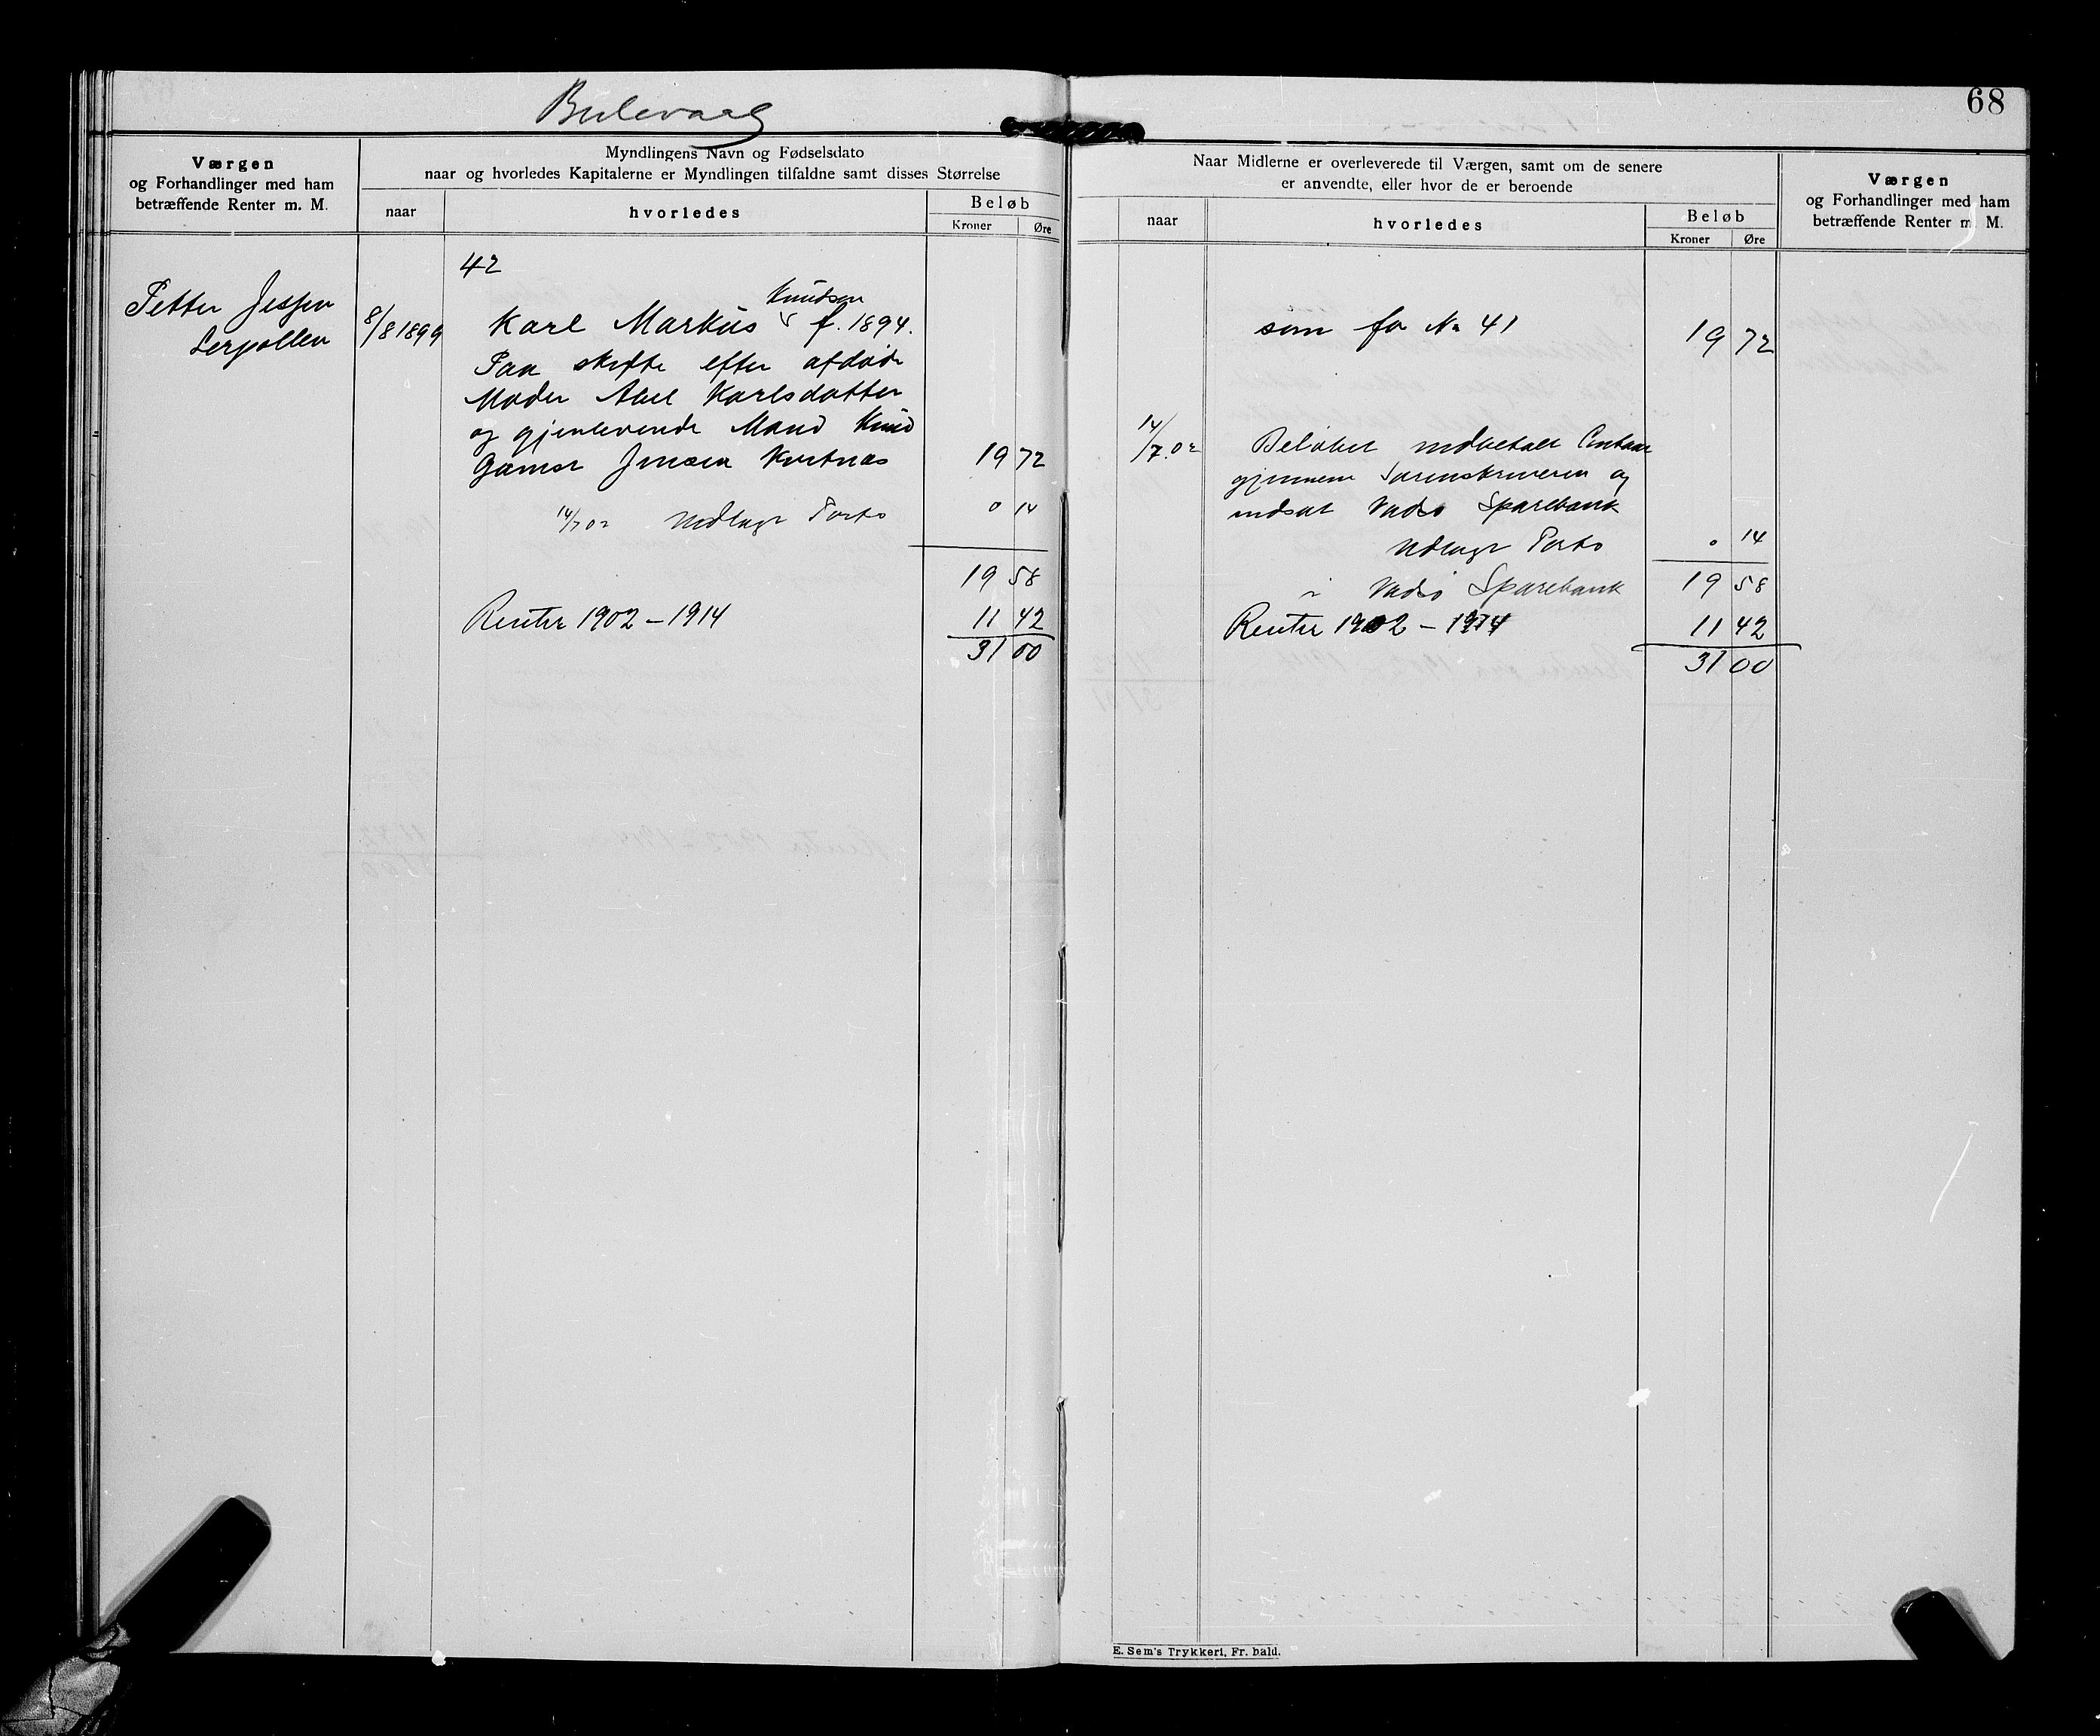 Bulevaag
68
Værgen
og Forhandlinger med ham
betræffende Renter m. M.
Myndlingens Navn og Fødselsdato
naar og hvorledes Kapitalerne er Myndlingen tilfaldne samt disses Størrelse
naar
hvorledes
Beløb
Kroner Øre
Naar Midlerne er overleverede til Værgen, samt om de senere
er anvendte, eller hvor de er beroende
naar
hvorledes
Beløb
Kroner Øre
Værgen
og Forhandlinger med ham
betræffende Renter m. M.
42
Petter Jessen
Lerpollen
8/8 1899
Knudsen
Karl Markus f. 1894.
Paa skifte efter afdøde
Moder Abel Karlsdatter
og gjenlevende Mand Knud
Jensen 19 72
14/7 02 Udlagt Porto 0 14
19 58
Renter 1902 – 1914 11 42
31 00
som for No 41 19 72
14/7.02 Beløbet indbetalt Contant
gjennem Sorenskriveren og
indsat Vadsø Sparebank
Udlagt Porto 0 14
i Vadsø Sparebank 19 58
Renter 1902 – 1914 11 42
31 00
E. Sem's Trykkeri, Fr. hald.